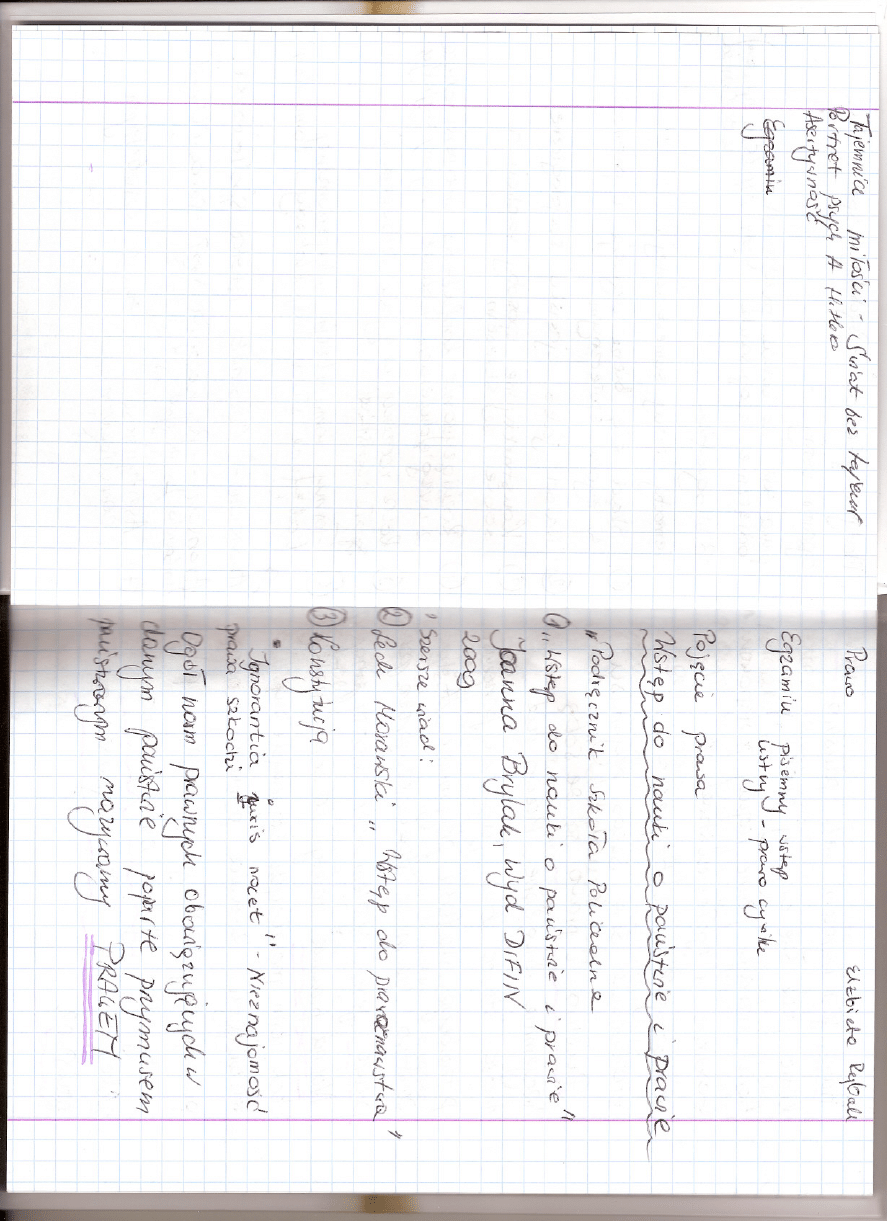 Tajemnica miłości - Świat bez tajemnic
Portret psych A Hitlera
Asertywność
Egzamin
Prawo Elżbieta
Egzamin pisemny wstęp
ustny - prawo cywilne
Pojęcie prawa
Wstęp do nauki o państwie i prawie
"Podręcznik Szkoła Policealna
① „Wstęp do nauki o państwie i prawie"
Joanna Brylak, Wyd DIFIN
2009
' Szersze wiad:
② Lech Morawski „Wstęp do prawoznawstwa"
③ Konstytucja
• Ignorantia iuris nocet" - Nieznajomość
prawa szkodzi
Ogół norm prawnych obowiązujących w
danym państwie poparte przymusem
państwowym nazywamy PRAWEM.